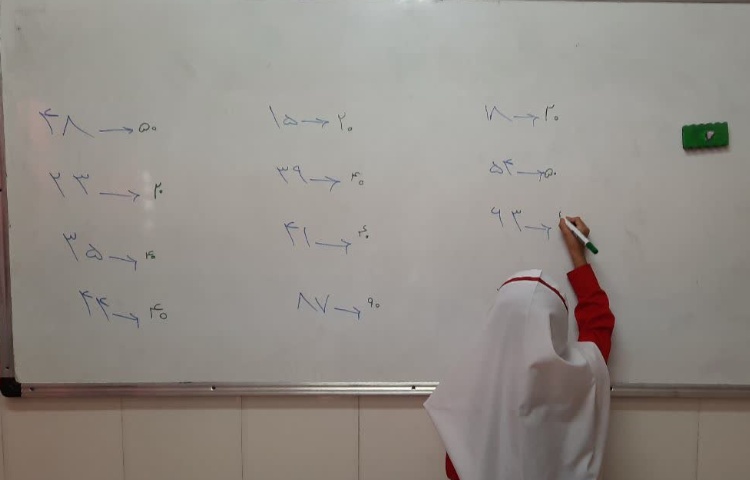 ۴۸ → ۵۰
۲۳ → ۲۰
۳۵ → ۴۰
۴۴ → ۴۰
۱۵ → ۲۰
۳۹ → ۴۰
۴۱ → ۴۰
۸۷ → ۹۰
۱۸ → ۲۰
۵۴ → ۵۰
۶۳ →